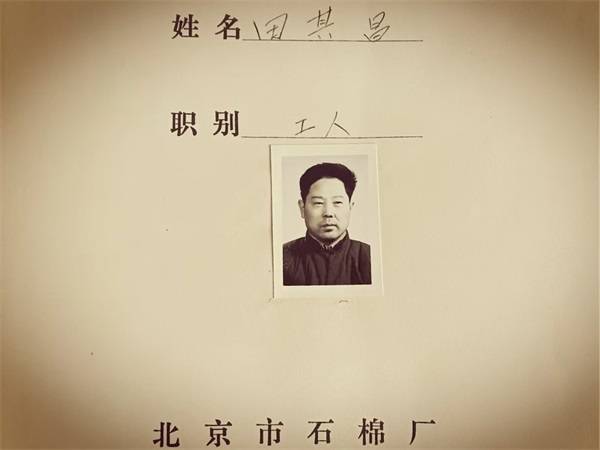 姓名 田其昌
职别 工人
北京市石棉厂